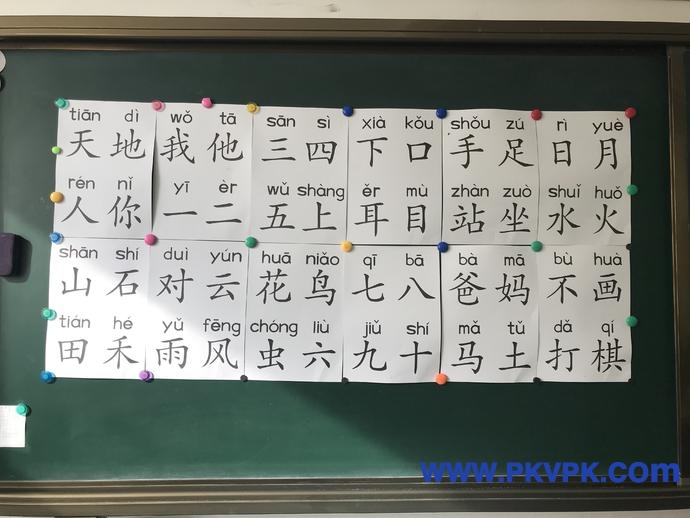 tiān dì wǒ tā sān sì xià kǒu shǒu zú rì yuè
天地我他三四下口手足日月
rén nǐ yī èr wǔ shàng ěr mù zhàn zuò shuǐ huǒ
人你一二五上耳目站坐水火
shān shí duì yún huā niǎo qī bā bà mā bù huà
山石对云花鸟七八爸妈不画
tián hé yǔ fēng chóng liù jiǔ shí mǎ tǔ dǎ qí
田禾雨风虫六九十马土打棋
www.PKVPK.com